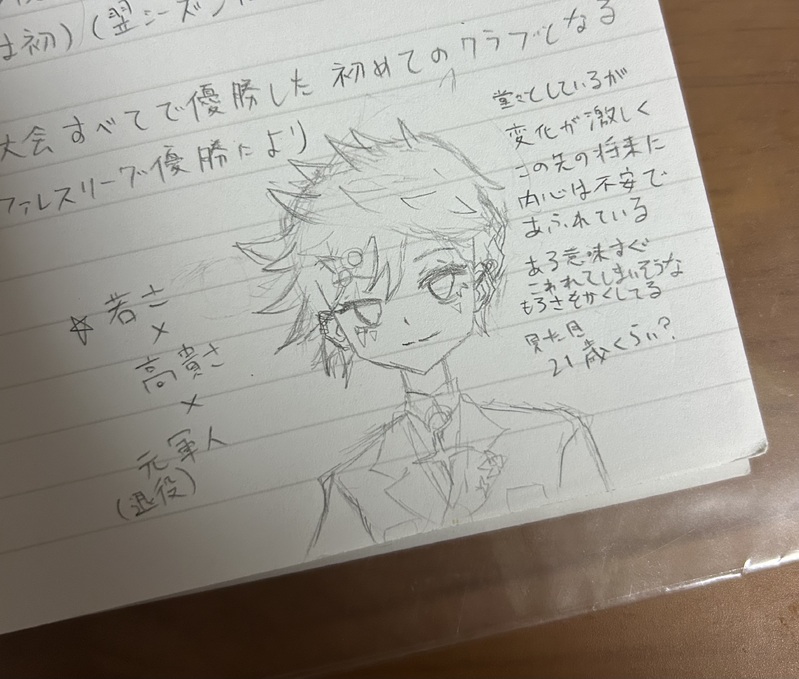 は初)(翌シーズン
大会すべてで優勝した 初めてのクラブとなる
ファルスリーグ優勝により
☆若さ
×
高貴さ
×
元軍人
(退役)
堂々としているが
変化が激しく
この先の将来に
内心は不安で
あふれている
ある意味すぐ
こわれてしまいそうな
もろさをかくしてる
見た目
21歳くらい?